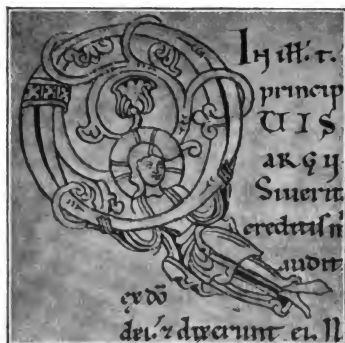 In ill. t.
princip
UIS
aRGU
Siverit
creditis n
audit
ex dō
dei. & dixerunt. ei. N